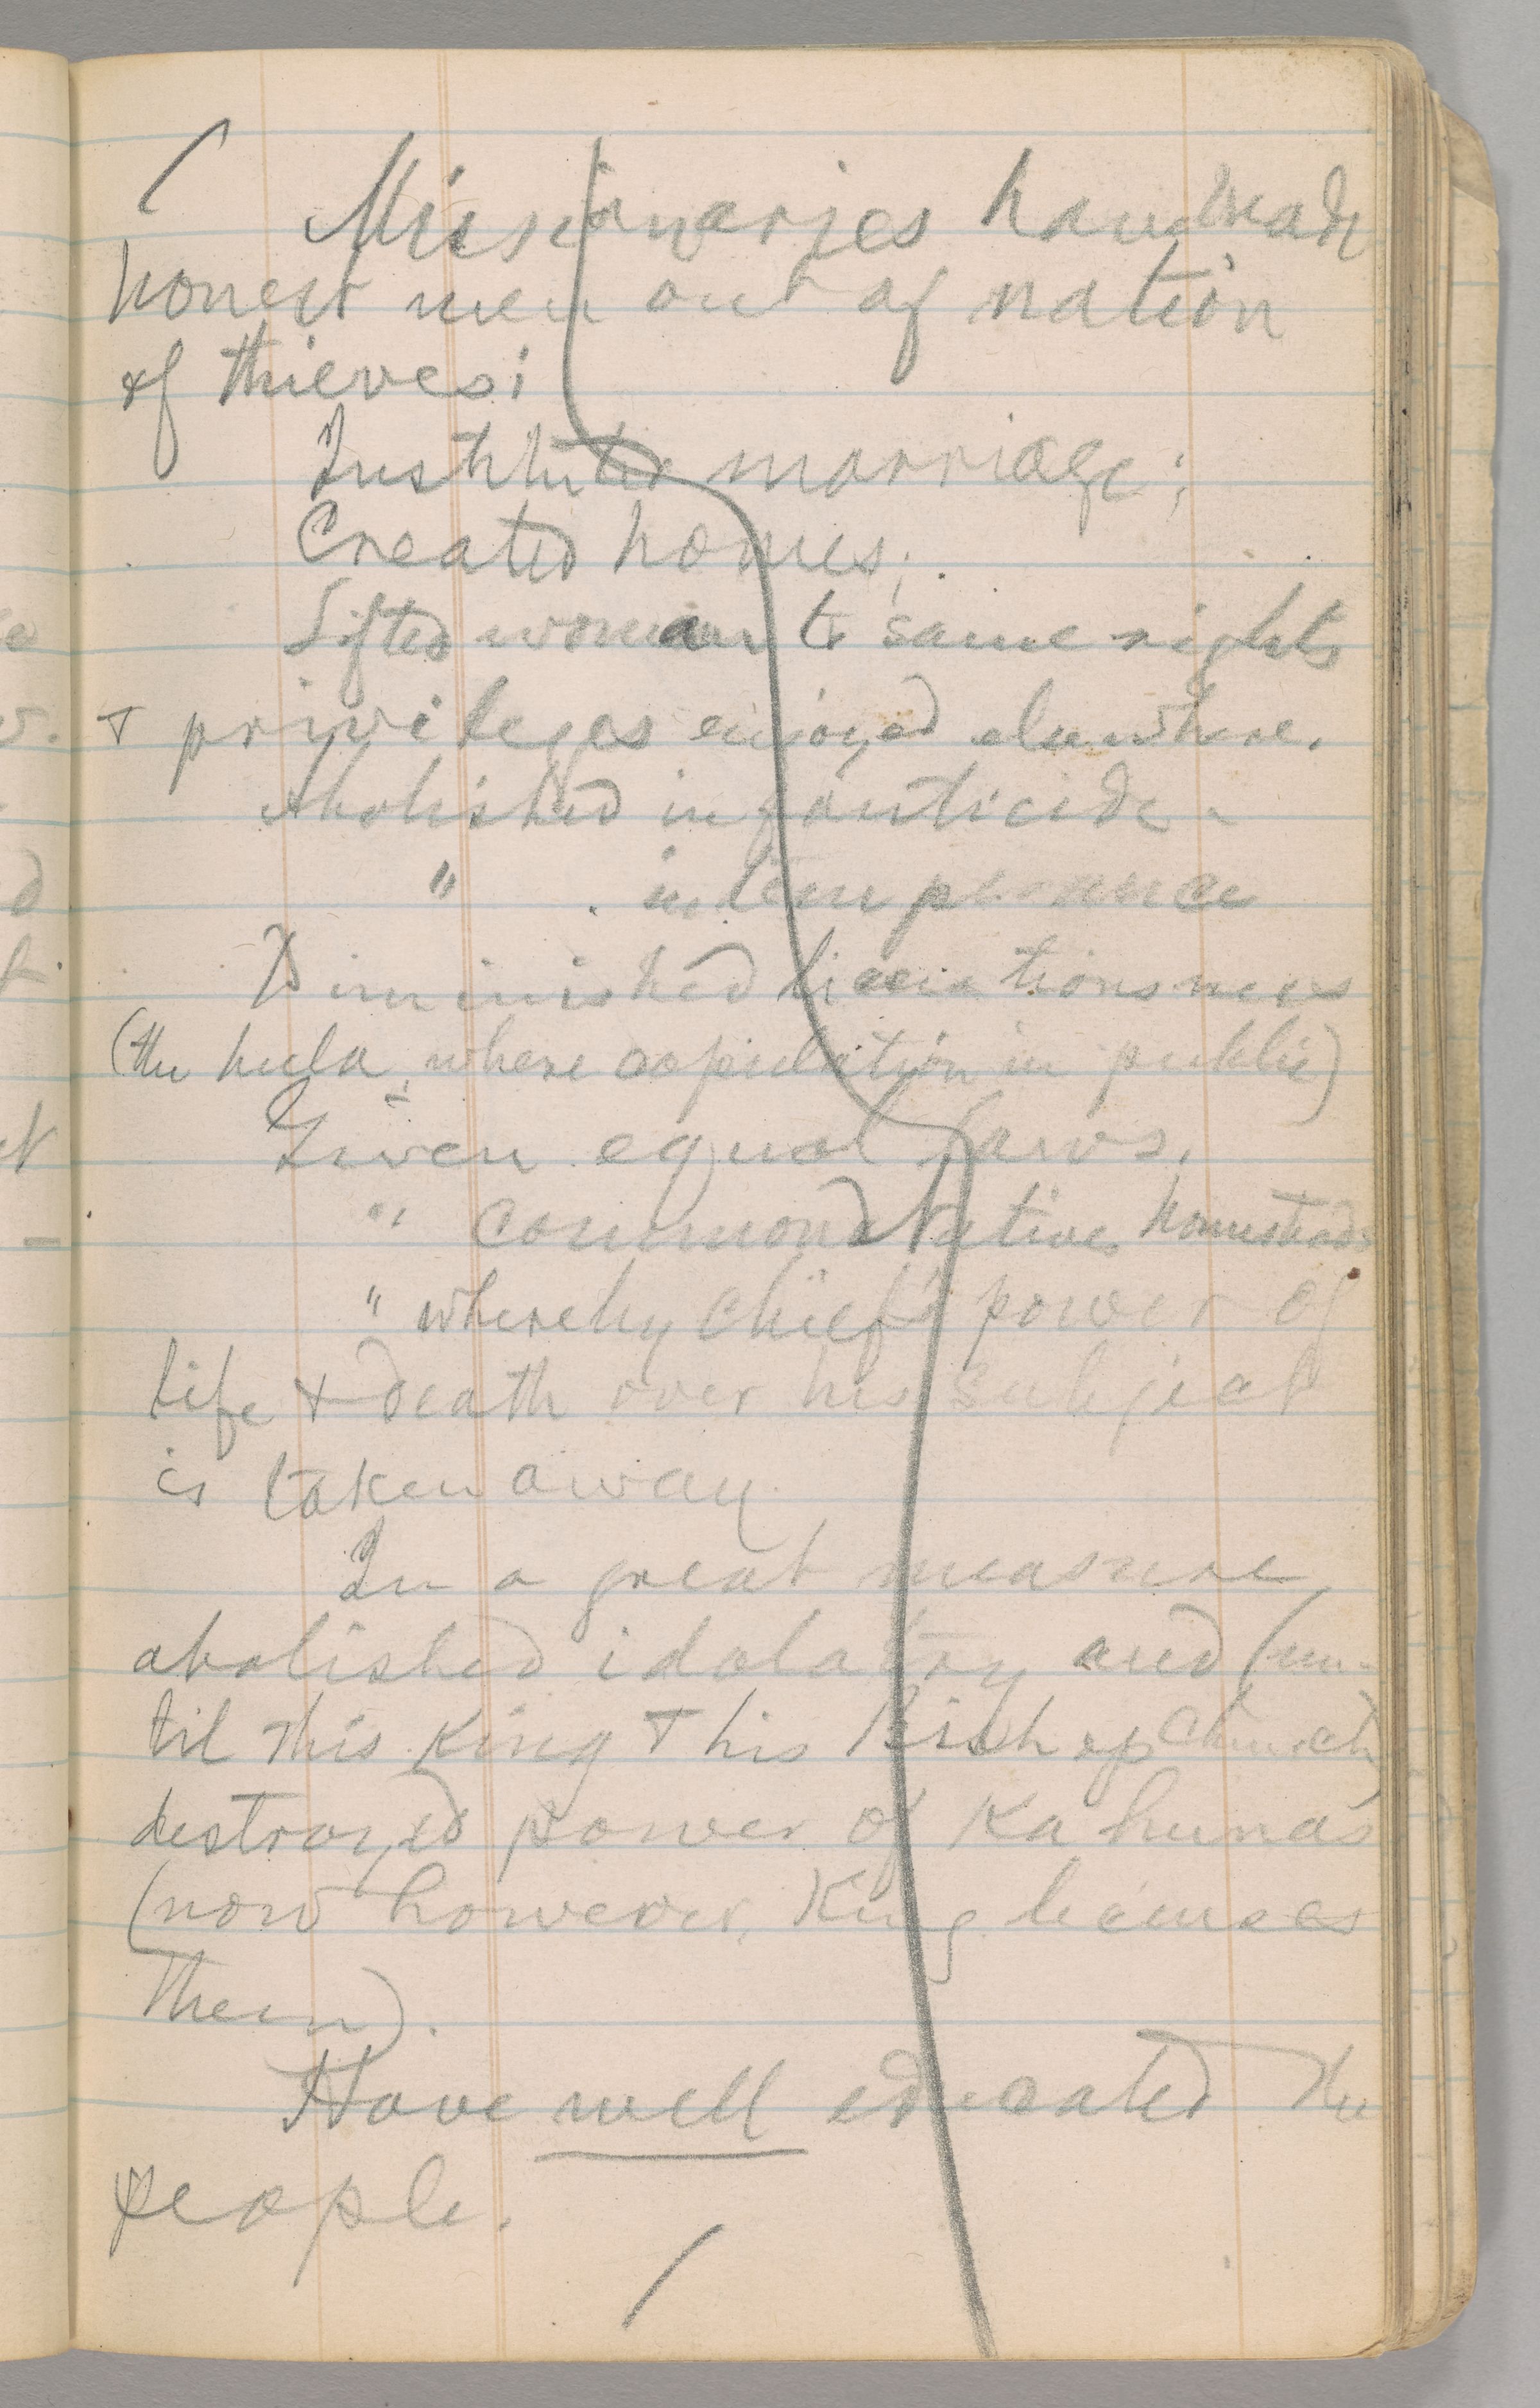 Missionaries have made
honest men out of nation
of thieves;
Instituted marriage;
Created homes;
Lifted woman to same rights
& privileges enjoyed elsewhere.
Abolished infanticide
" intemperance
Diminished licentiousness
(the hula, where copulation in public)
Given equal laws.
" common natives homesteads
" whereby chief's power of
life & death over his subject
is taken away.
In a great measure
abolished idolatry and (un-
til this King & his Bishop Church)
destroyed power of Kahunas
(now however, King licenses
them).
Have well educated the
people.